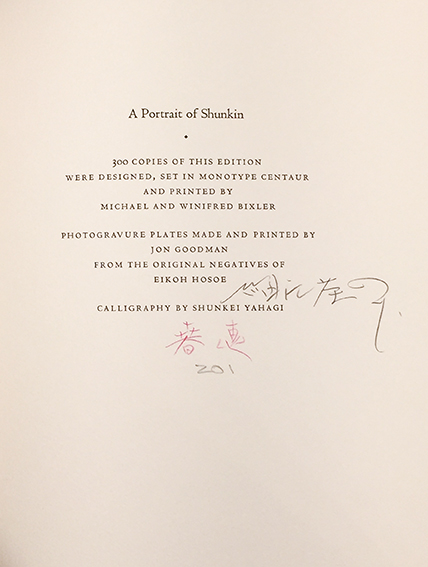 A Portrait of Shunkin
•
300 COPIES OF THIS EDITION
WERE DESIGNED, SET IN MONOTYPE CENTAUR
AND PRINTED BY
MICHAEL AND WINIFRED BIXLER
PHOTOGRAVURE PLATES MADE AND PRINTED BY
JON GOODMAN
FROM THE ORIGINAL NEGATIVES OF
EIKOH HOSOE
CALLIGRAPHY BY SHUNKEI YAHAGI
春恵
201